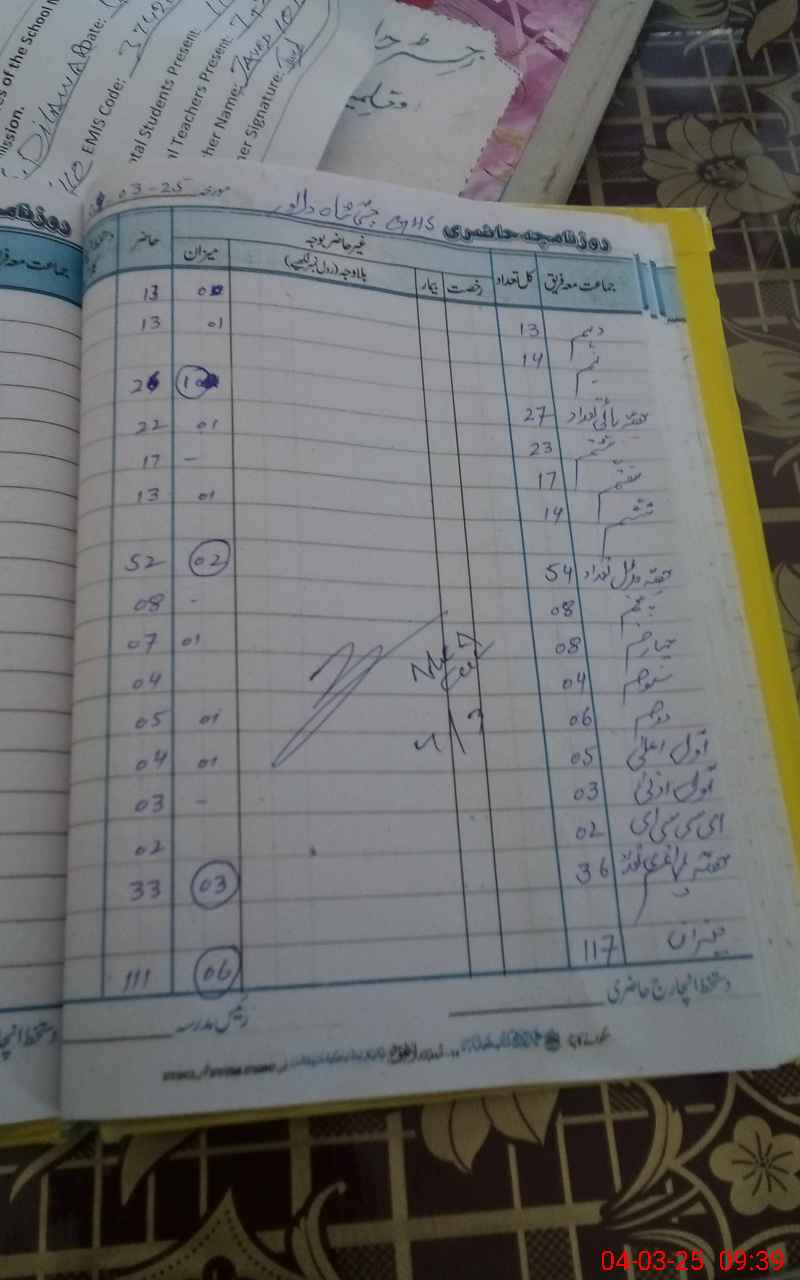 es of the School
mission.
DILAWAR Date:
EMIS Code: 3742
tal Students Present:
l Teachers Present:
her Name: JAVED IQB
er Signature:
رجسٹر حا
وقلمیہ
مورخہ 03-25
روزنامچہ حاضری GHS چنی شاہ دلاور
جماعت معہ فریق کل تعداد رخصت بیمار غیر حاضر بوجہ بلاوجہ (رول نمبر لکھیے) میزان حاضر
دہم 13 13
نہم 14 01 13
حصہ ہائی تعداد 27 26
ہشتم 23 01 22
ہفتم 17 - 17
ششم 14 01 13
حصہ مڈل تعداد 54 02 52
پنجم 08 - 08
چہارم 08 01 07
سوم 04 04
دوم 06 01 05
اول اعلیٰ 05 01 04
اول ادنیٰ 03 - 03
ای سی سی ای 02 02
حصہ پرائمری تعداد 36 03 33
میزان 117 06 111
دستخط انچارج حاضری
رئیس مدرسہ
روزنامچہ
جماعت معہ فریق
دستخط انچا
04-03-25 09:39